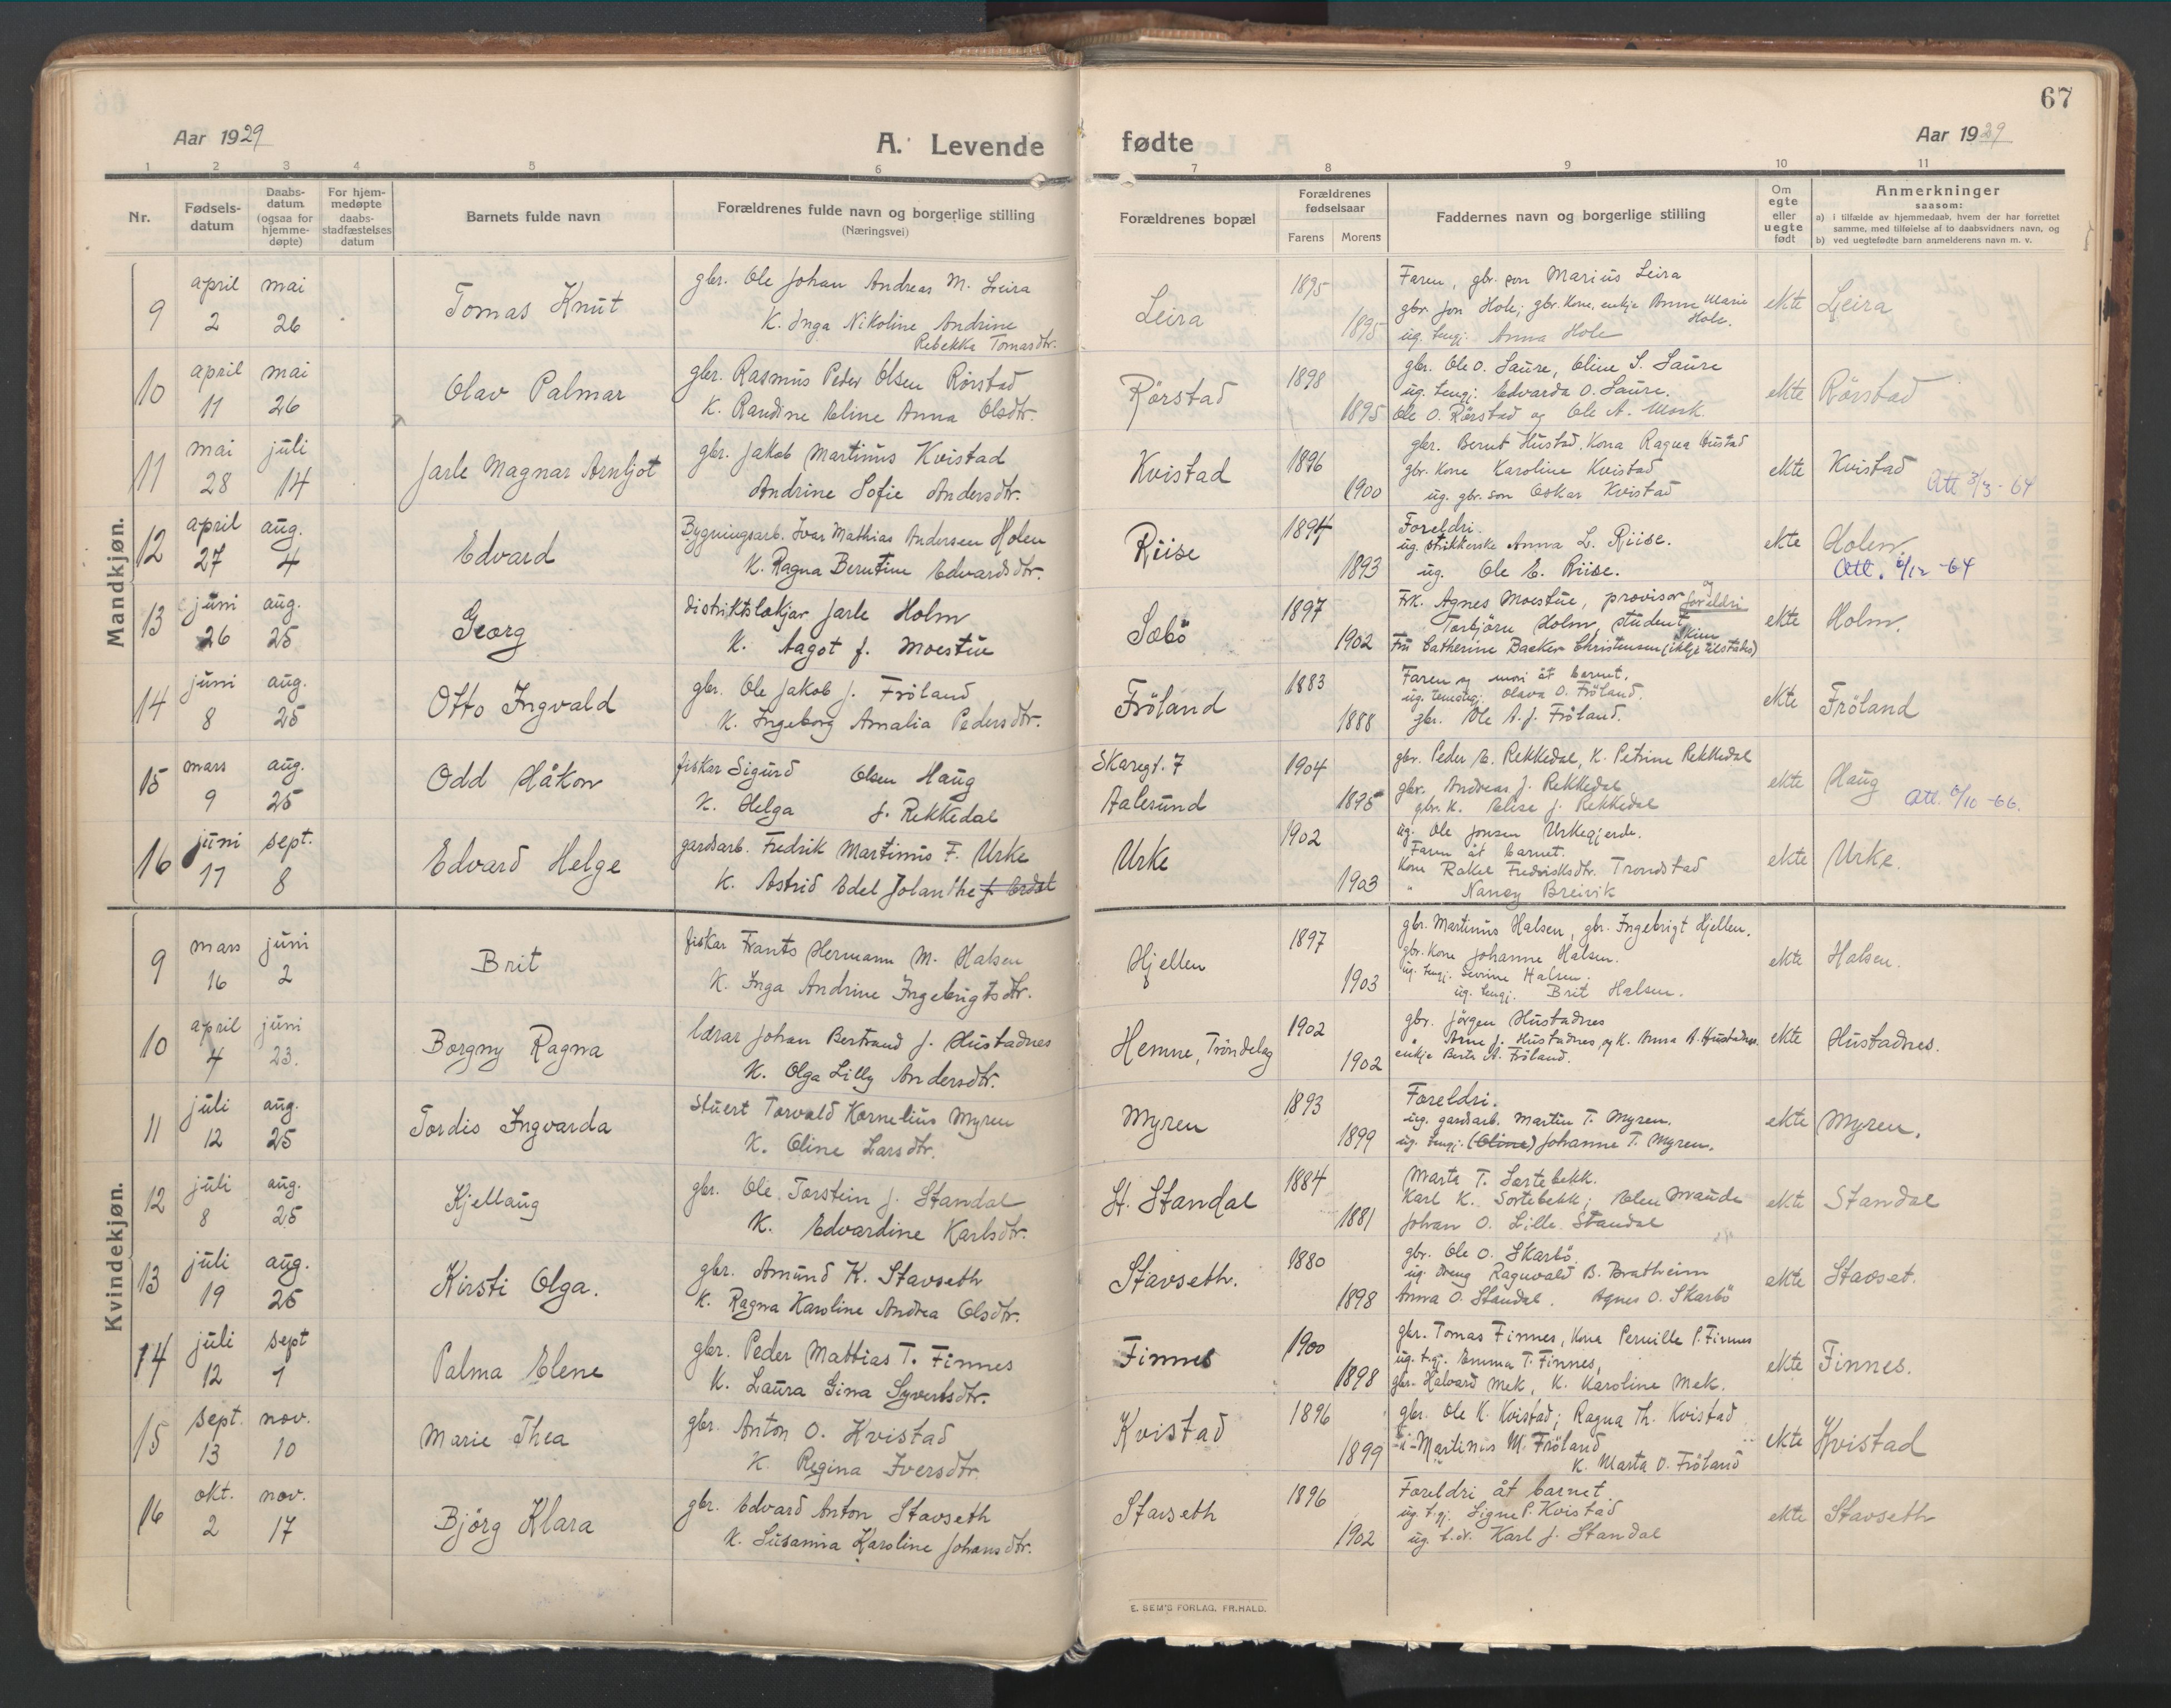 67
Aar 1929
A. Levende fødte
Aar 1929
1 2 3 4 5 6 7 8 9 10 11
Nr.
Fødsels-
datum
Daabs-
datum
(ogsaa for
hjemme-
døpte)
For hjem-
medøpte
daabs-
stadfæstelses
datum
Barnets fulde navn
Forældrenes fulde navn og borgerlige stilling
(Næringsvei)
Forældrenes bopæl
Forældrenes
fødselsaar
Farens Morens
Faddernes navn og borgerlige stilling
Om
egte
eller
uegte
født
Anmerkninger
saasom:
a) i tilfælde av hjemmedaab, hvem der har forrettet
samme, med tilføielse af to daabsvidners navn, og
b) ved uegtefødte barn anmelderens navn m. v.
Mandkjøn.
9 april 2 mai 26
Tomas Knut
gbr. Ole Johan Andreas M. Leira
K. Inga Nikoline Andrine
Rebekka Tomasdtr.
Leira 1895 1895
Faren, gbr. son Marius Leira
gbr. Jon Hole; gbr. kone, enkje Anne Marie
Hole.
ug. tengj. Anna Hole
ekte Leira
10 april 11 mai 26
Olav Palmar
gbr. Rasmus Peder Olsen Rörstad
K. Randine Eline Anna Olsdtr.
Rörstad 1898 1895
gbr. Ole O. Saure, Oline S. Saure
ug. tengj. Edvarda O. Saure.
Ole O. Rörstad og Ole A. Mork.
ekte Rörstad
11 mai 28 juli 14
Jarle Magnar Arnljot
gbr. Jakob Martinus Kvistad
Andrine Sofie Andersdtr.
Kvistad 1896 1900
gbr. Bernt Hustad. Kona Ragna Hustad
gbr. kone Karoline Kvistad
ug. gbr. son Oskar Kvistad
ekte Kvistad Att 3/3-64
12 april 27 aug. 4
Edvard
Bygningsarb. Ivar Mathias Andersen Holen
K. Ragna Berntine Edvardsdtr.
Riise 1894 1893
Foreldri.
ug. strikkerske Anna L. Riise.
ug. Ole E. Riise.
ekte Holen
Att. 4/12-64
13 juni 26 aug. 25
Georg
distriktslækjar Jarle Holm
K. Aagot f. Moestue
Sæbö 1897 1902
Frk. Agnes Moestue, provisor og foreldri
Torbjörn Holm, student
Fru Catherine Backer Christensen (ikkje tilstades)
ekte Holm.
14 juni 8 aug. 25
Otto Ingvald
gbr. Ole Jakob J. Fröland
K. Ingeborg Amalia Pedersdtr.
Fröland 1883 1888
Faren og mori åt barnet.
ug. tenestgj. Olava O. Fröland.
gbr. Ole A. J. Fröland.
ekte Fröland
15 mars 9 aug. 25
Odd Håkon
fiskar Sigurd Olsen Haug
K. Helga f. Rekkedal
Skaregt. 7
Aalesund
1904 1895
gbr. Peder E. Rekkedal, K. Petrine Rekkedal
gbr. Andreas J. Rekkedal
gbr. K. Elise J. Rekkedal
ekte Haug Att. 6/10-66.
16 juni 17 sept. 8
Edvard Helge
gardsarb. Fredrik Martinus F. Urke
K. Astrid Edel Jolanthe f. Erdal
Urke 1902 1903
ug. Ole Jonsen Urkegjerde.
Faren åt barnet.
kone Rakel Fredriksdtr. Trondstad
" Nancy Breivik
ekte Urke.
Kvindekjøn.
9 mars 16 juni 2
Brit
fiskar Frants Hermann M. Halsen
K. Inga Andrine Ingebrigtsdtr.
Hjellen 1897 1903
gbr. Martinus Halsen, gbr. Ingebrigt Hjellen.
gbr. kone Johanne Halsen.
ug. tengj. Severine Halsen.
ug. tengj. Brit Halsen.
ekte Halsen.
10 april 4 juni 23.
Borgny Ragna
lærar Johan Bertrand J. Hustadnes
K. Olga Lilly Andersdtr.
Hemne, Tröndelag 1902 1902
gbr. Jörgen Hustadnes
" Arne J. Hustadnes, og K. Anna A. Hustadnes.
enkje Berte A. Fröland.
ekte Hustadnes.
11 juli 12 aug. 25
Tordis Ingvarda
Stuert Torvald Kornelius Myren
K. Oline Larsdtr.
Myren 1893 1899
Foreldri.
ug. gardsarb. Martin T. Myren.
ug. tengj. (Oline) Johanne T. Myren.
ekte Myren.
12 juli 8 aug. 25
Kjellaug
gbr. Ole Torstein J. Standal
K. Edvardine Karlsdtr.
St. Standal 1884 1881
Marta T. Sortebekk.
Karl K. Sortebekk; Elen Maude
Johan O. Lille-Standal
ekte Standal
13 juli 19 aug. 25
Kirsti Olga.
gbr. Amund K. Stavseth
K. Ragna Karoline Andrea Olsdtr.
Stavseth. 1880 1898
gbr. Ole O. Skarbö
ug. dreng Ragnvald B. Brattheim
Anna O. Standal. Agnes O. Skarbö
ekte Stavset.
14 juli 12 sept 1
Palma Elene
gbr. Peder Mattias T. Finnes
K. Laura Gina Syvertsdtr.
Finnes 1900 1898
gbr. Tomas Finnes, kona Pernille P. Finnes
ug. t.gj. Emma T. Finnes,
gbr. Halvard Mek, K. Karoline Mek.
ekte Finnes.
15 sept. 13 nov. 10
Marie Thea
gbr. Anton O. Kvistad
K. Regina Iversdtr.
Kvistad 1896 1899
gbr. Ole K. Kvistad; Ragna Th. Kvistad
-"- Martinus M. Fröland
K. Marta O. Fröland
ekte Kvistad
16 okt. 2 nov. 17
Björg Klara
gbr. Edvard Anton Stavseth
K. Susanna Karoline Johansdtr.
Stavseth 1896 1902
Foreldri åt barnet
ug. t.gj. Signe P. Kvistad
ug. t.dr. Karl J. Standal
ekte Stavseth
E. SEM'S FORLAG, FR.HALD.